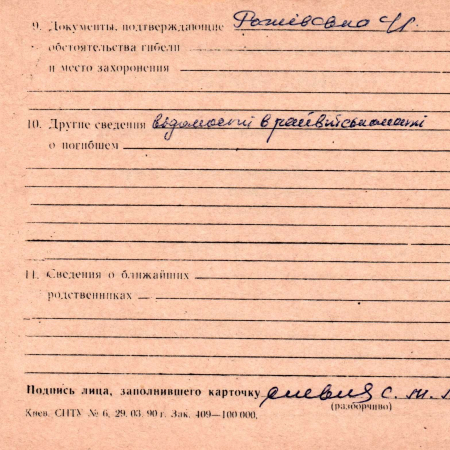 9. Документы, подтверждающие
обстоятельства гибели
и место захоронения
10. Другие сведения відомості в райвійськоматі
о погибшем
11. Сведения о ближайших
родственниках
Подпись лица, заполнившего карточку
(разборчиво)
Киев. СНТУ № 6, 29. 03. 90 г. Зак. 409—100 000.